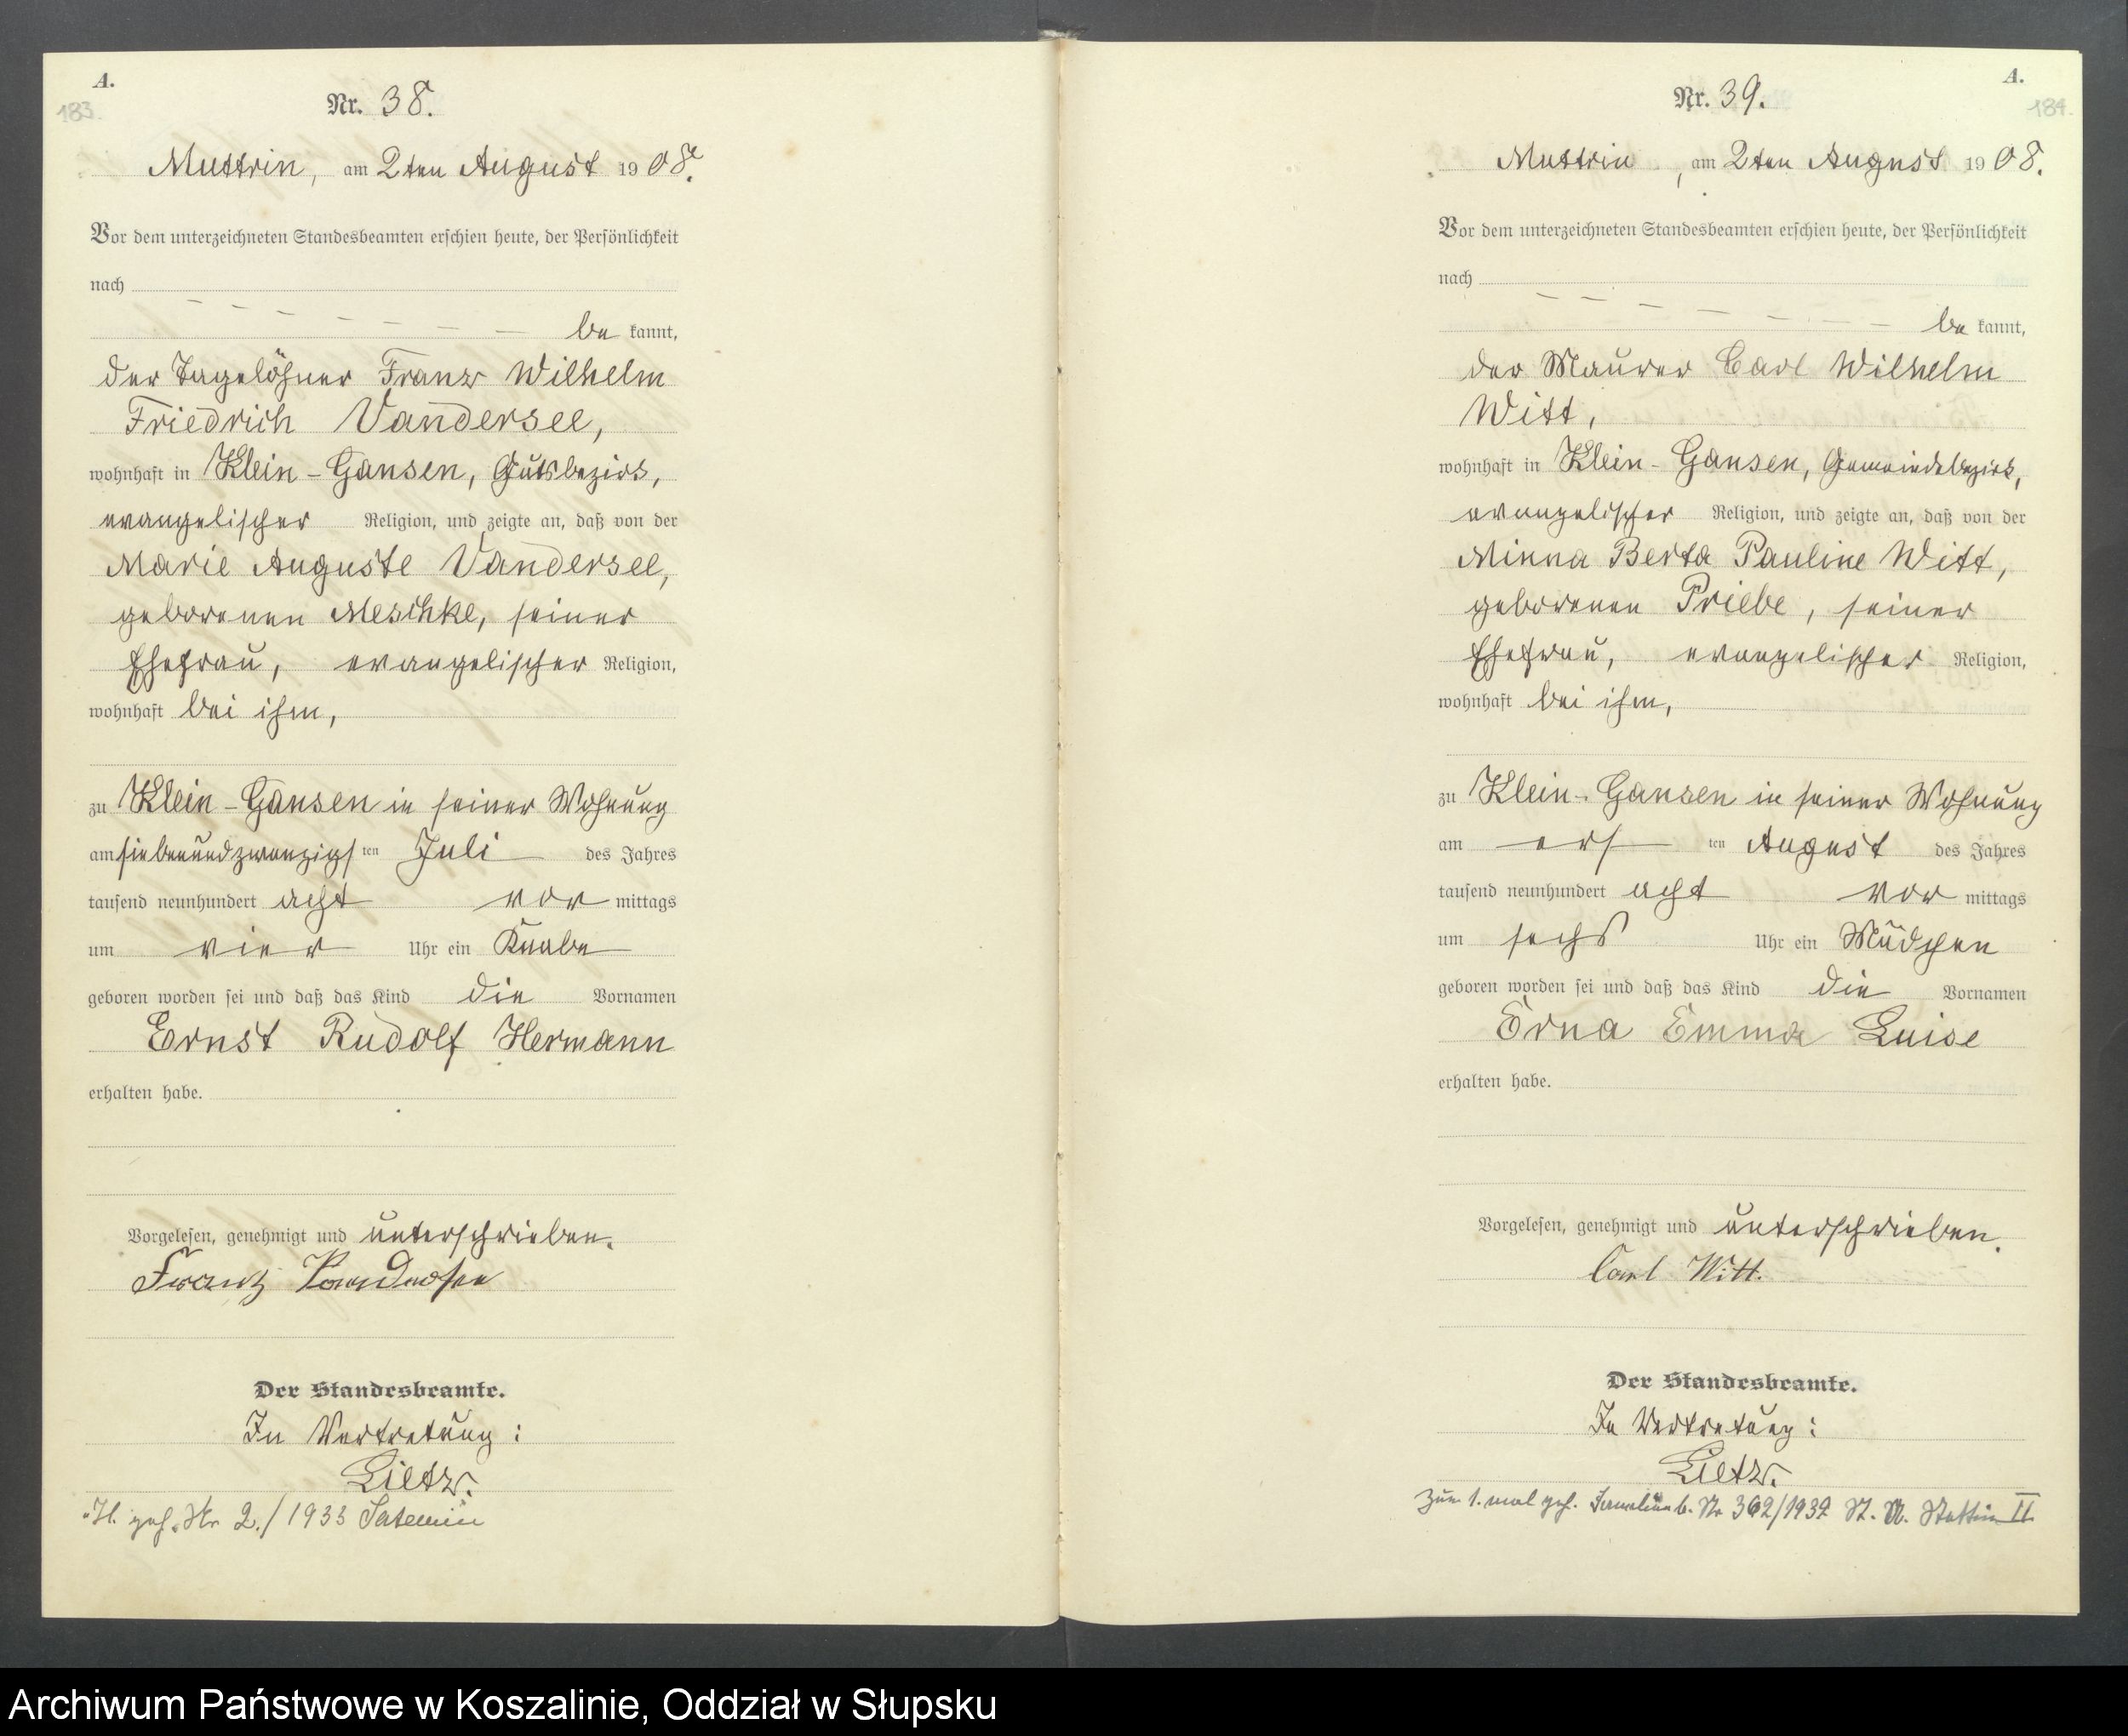 A.
183.
Nr. 38.
Muttrin, am 2ten August 1908.
Vor dem unterzeichneten Standesbeamten erschien heute, der Persönlichkeit
nach
be kannt,
der Tagelöhner Franz Wilhelm
Friedrich Vandersee,
wohnhaft in Klein-Gansen, Gutsbezirk,
evangelischer Religion, und zeigte an, daß von der
Marie Auguste Vandersee,
geborenen Meschke, seiner
Ehefrau, evangelischer Religion,
wohnhaft bei ihm,
zu Klein-Gansen in seiner Wohnung
am siebenundzwanzigsten Juli des Jahres
tausend neunhundert acht vor mittags
um vier Uhr ein Knabe
geboren worden sei und daß das Kind die Vornamen
Ernst Rudolf Hermann
erhalten habe.
Vorgelesen, genehmigt und unterschrieben.
Franz Vandersee
Der Standesbeamte.
In Vertretung:
Lietz.
H. geh. Nr 2./1933
A.
184.
Nr. 39.
Muttrin, am 2ten August 1908.
Vor dem unterzeichneten Standesbeamten erschien heute, der Persönlichkeit
nach
be kannt,
der Maurer Carl Wilhelm
Witt,
wohnhaft in Klein-Gansen, Gemeindebezirk,
evangelischer Religion, und zeigte an, daß von der
Minna Berta Pauline Witt,
geborenen Priebe, seiner
Ehefrau, evangelischer Religion,
wohnhaft bei ihm,
zu Klein-Gansen in seiner Wohnung
am ersten August des Jahres
tausend neunhundert acht vor mittags
um sechs Uhr ein Mädchen
geboren worden sei und daß das Kind die Vornamen
Erna Emma Luise
erhalten habe.
Vorgelesen, genehmigt und unterschrieben.
Carl Witt.
Der Standesbeamte.
In Vertretung:
Lietz.
Zum 1. mal geh. Nr 362/1932 St. A. Stettin II
Archiwum Państwowe w Koszalinie, Oddział w Słupsku